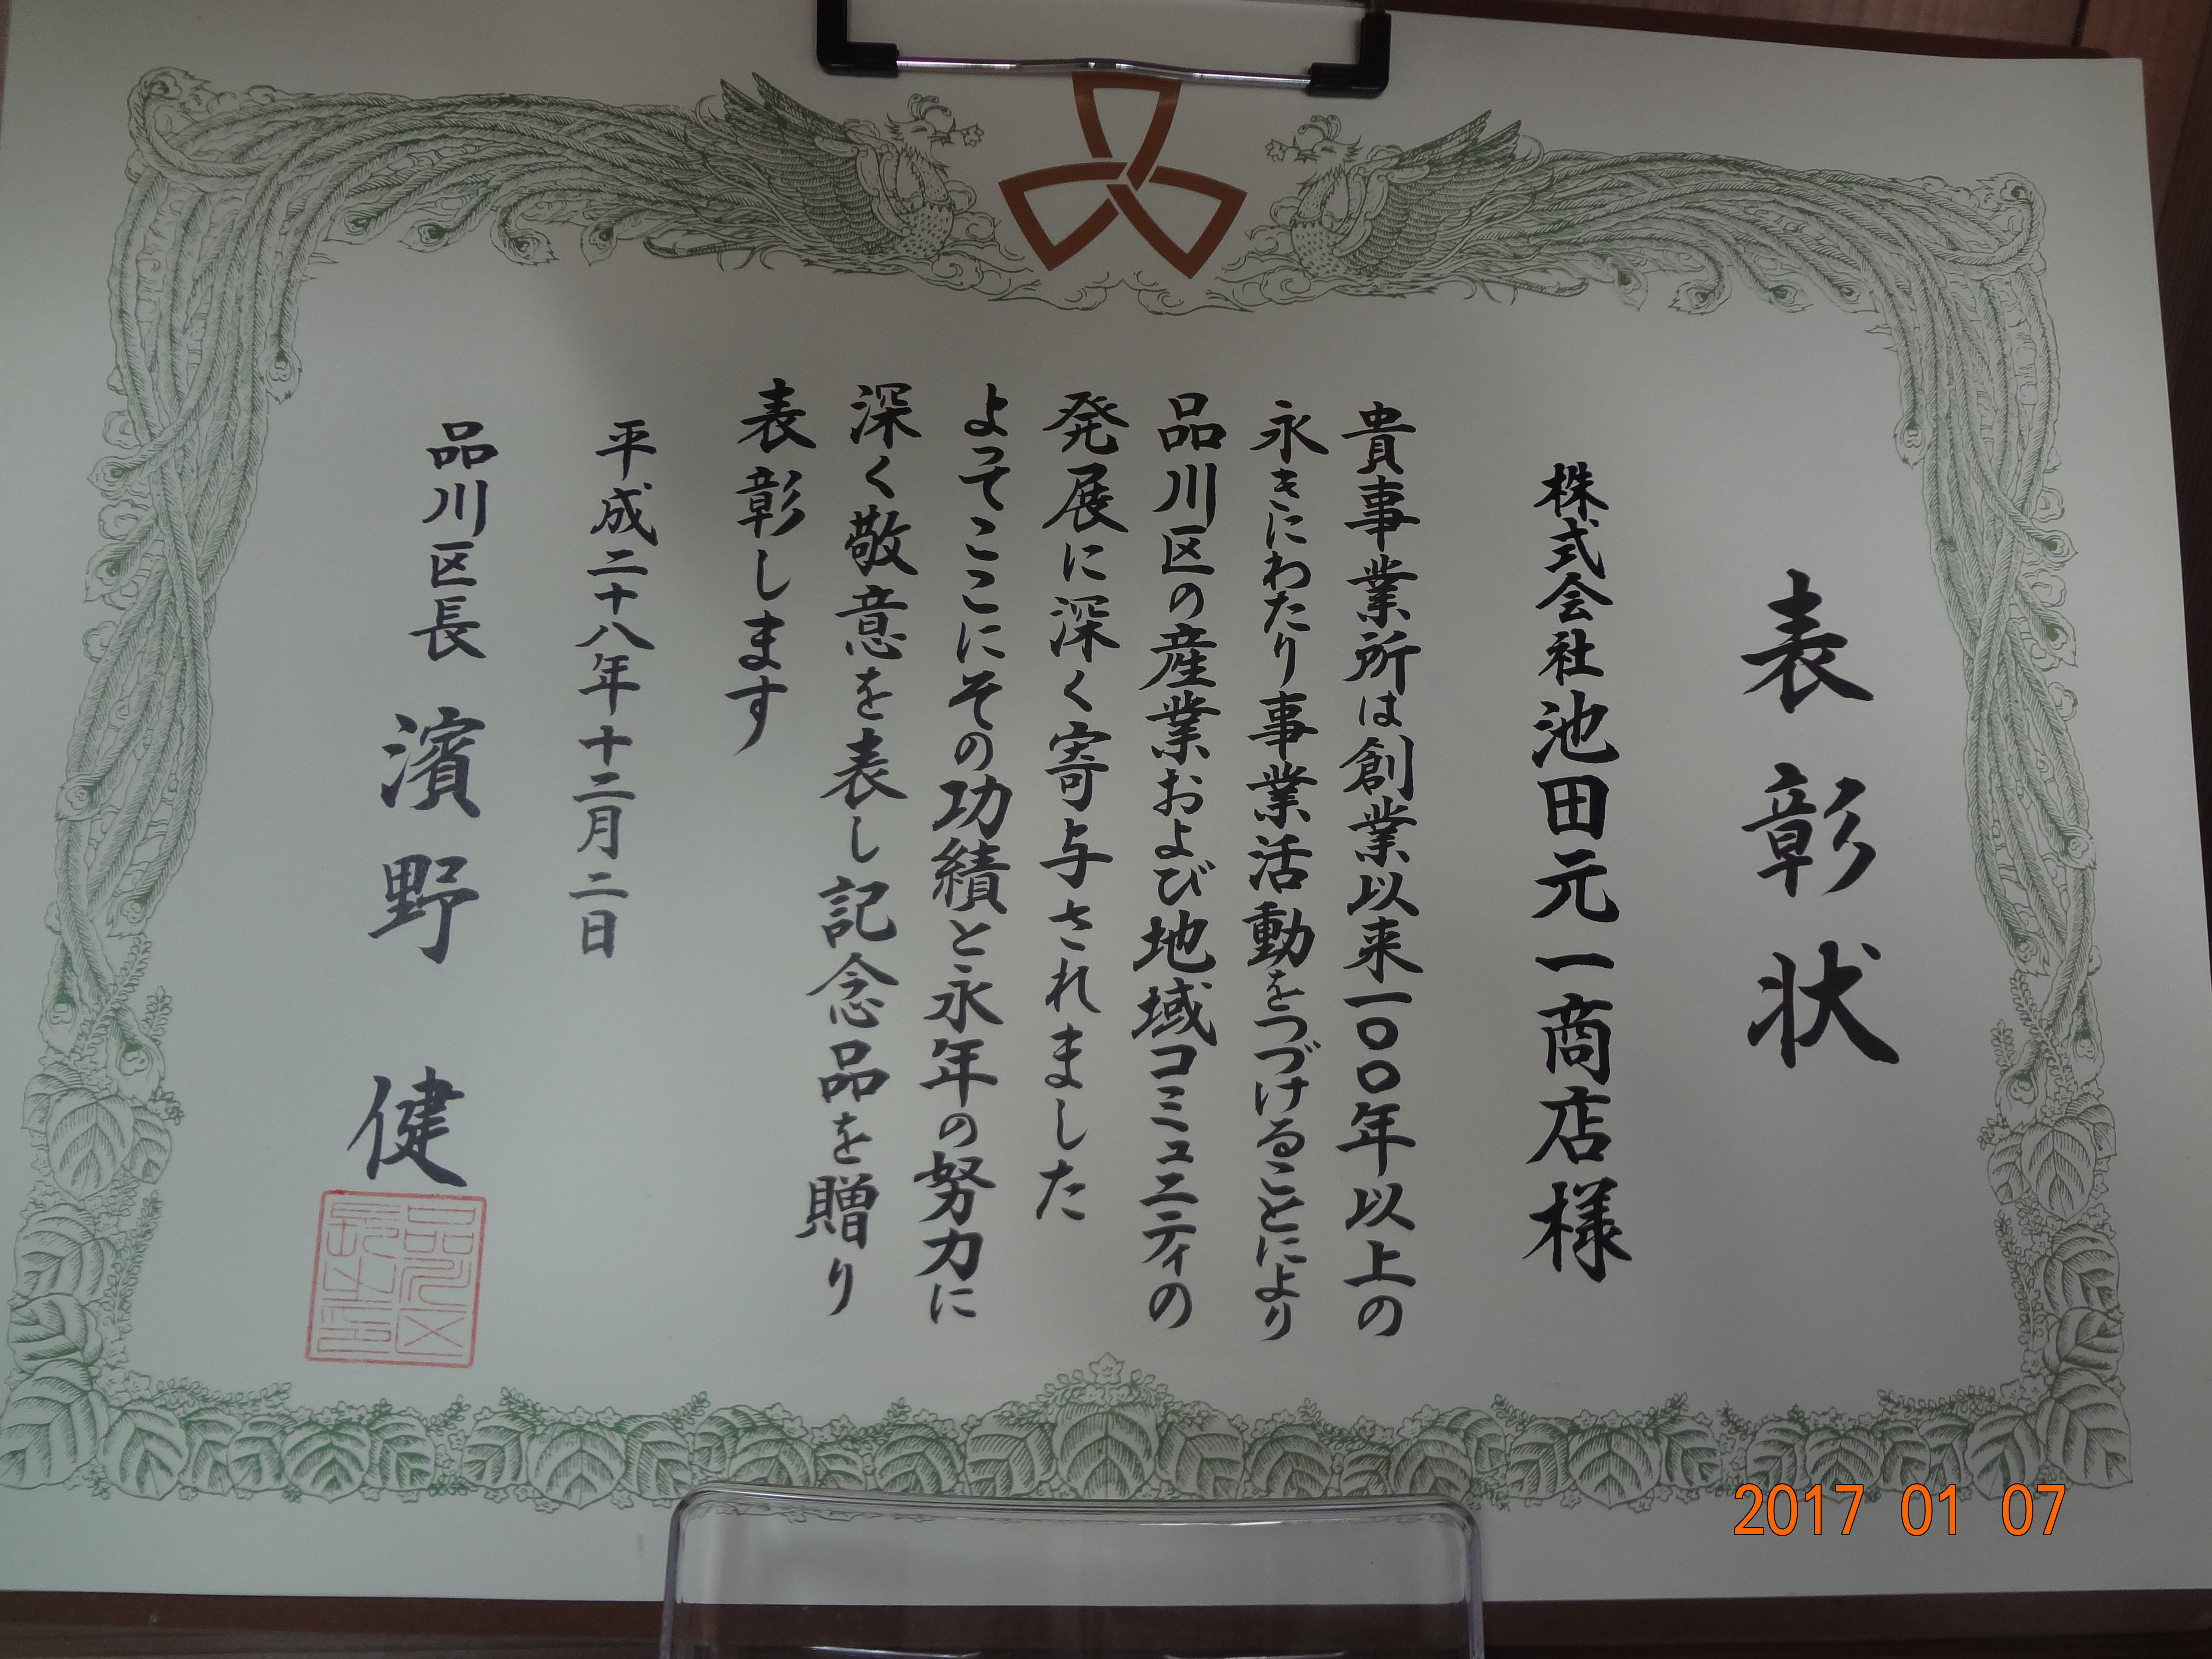 表彰状
株式会社池田元一商店様
貴事業所は創業以来一〇〇年以上の
永きにわたり事業活動をつづけることにより
品川区の産業および地域コミュニティの
発展に深く寄与されました
よってここにその功績と永年の努力に
深く敬意を表し記念品を贈り
表彰します
平成二十八年十二月二日
品川区長 濱野 健
品川区
長之印
2017 01 07